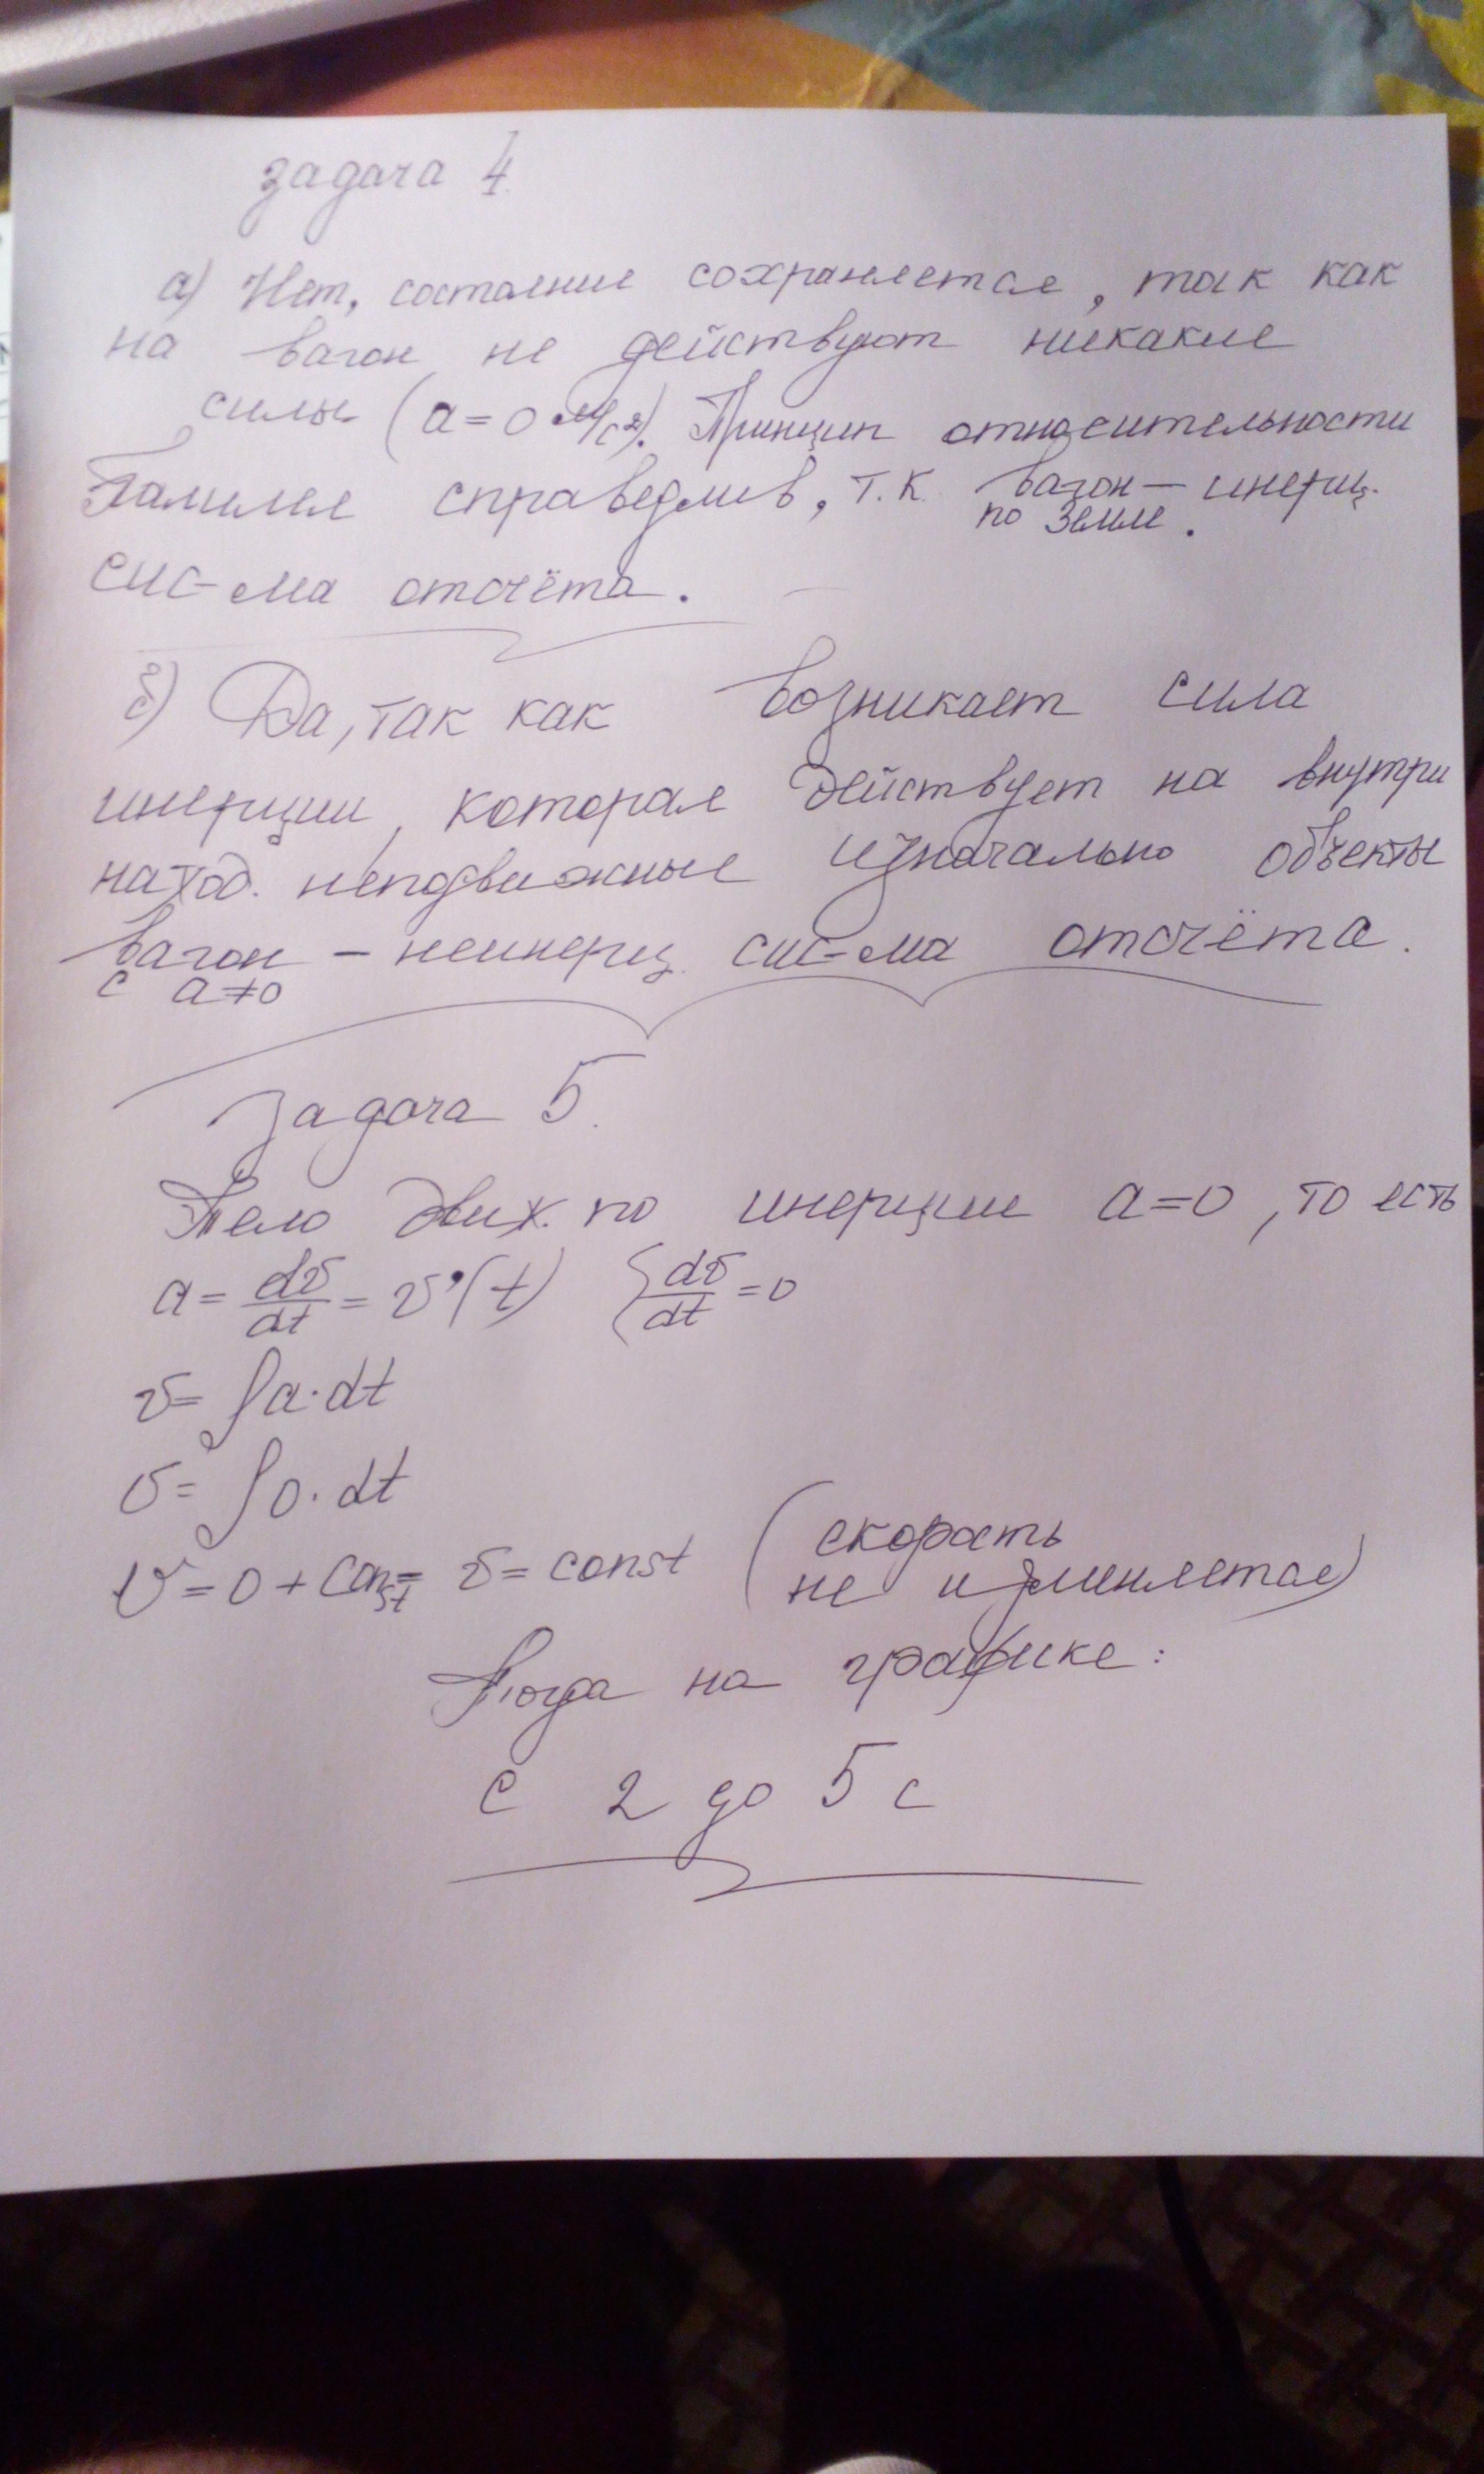 задача 4.
а) Нет, состояние сохраняется, так как
на вагон не действуют никакие
силы (a = 0 м/с²). Принцип относительности
Галилея справедлив, т.к вагон – инерц.
по Земле.
сис-ема отсчёта.
б) Да, так как возникает сила
инерции, которая действует на внутри
наход. неподвижные изначально объекты
вагон – неинерц. сис-ема отсчёта.
с a ≠ 0
Задача 5.
Тело движ. по инерции a = 0, то есть
a = dv/dt = v'(t) { dv/dt = 0
v = ∫a · dt
v = ∫0 · dt
v = 0 + const = v = const (скорость
не изменяется)
Тогда на графике:
с 2 до 5 с